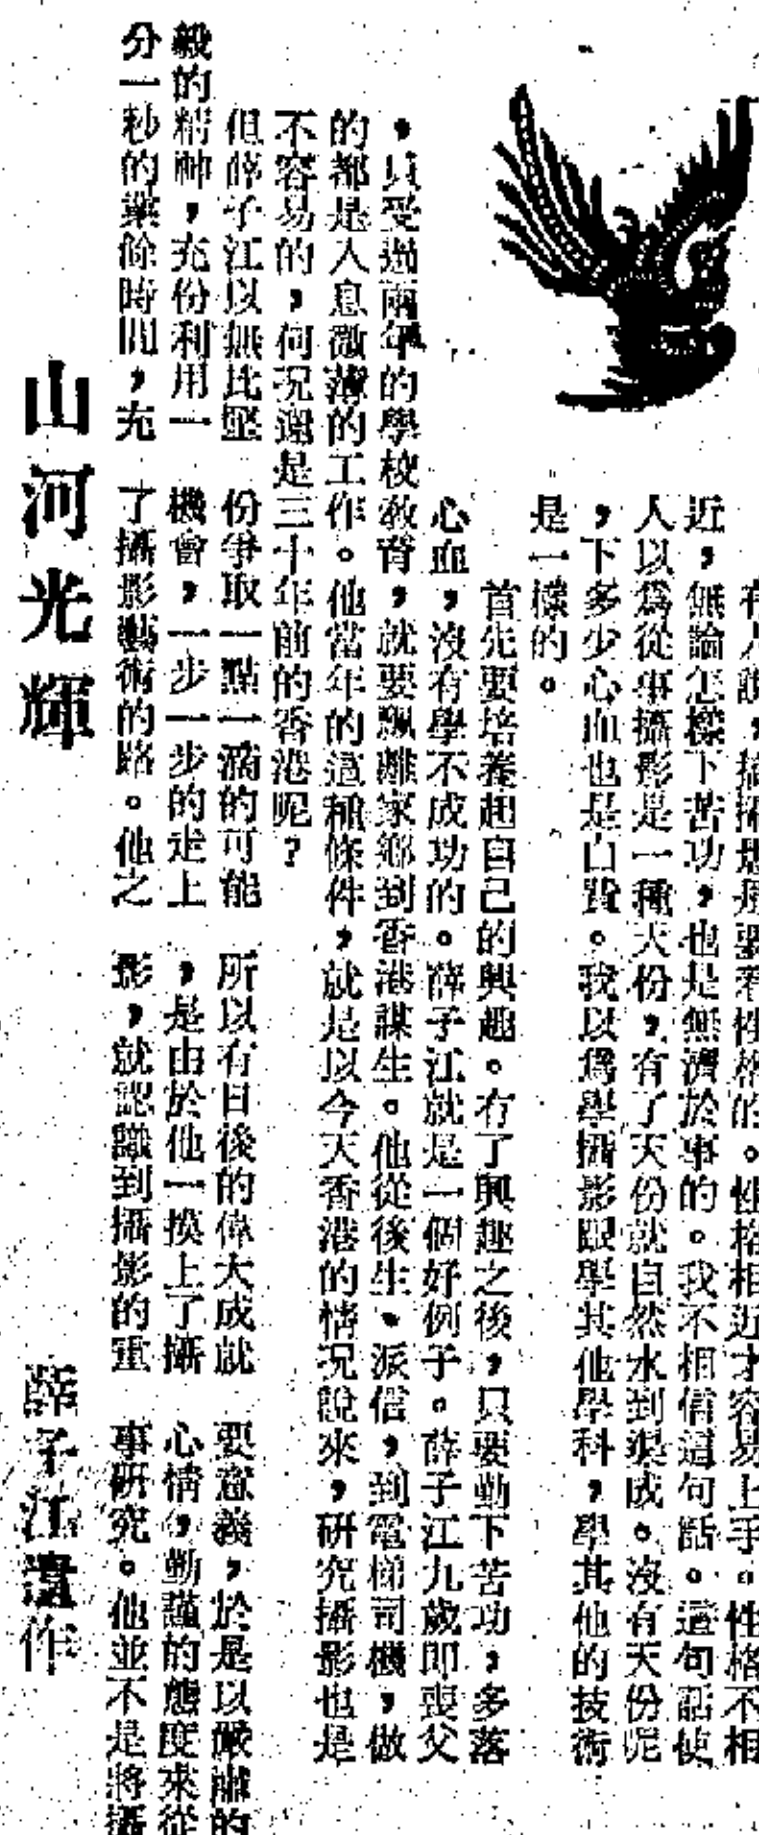 有人說，搞攝影是要看性格的。性格相近才容易上手。性格不相
近，無論怎樣下苦功，也是無濟於事的。我不相信這句話。這句話使
人以爲從事攝影是一種天份，有了天份就自然水到渠成。沒有天份呢
，下多少心血也是白費。我以爲學攝影跟學其他學科，學其他的技術
是一樣的。
首先要培養起自己的興趣。有了興趣之後，只要勤下苦功，多落
心血，沒有學不成功的。薛子江就是一個好例子。薛子江九歲即喪父
，只受過兩年的學校教育，就要飄離家鄉到香港謀生。他從後生、派信，到電梯司機，做
的都是入息微薄的工作。他當年的這種條件，就是以今天香港的情况說來，研究攝影也是
不容易的，何况還是三十年前的香港呢？
但薛子江以無比堅
毅的精神，充份利用一
分一秒的業餘時間，充
份爭取一點一滴的可能
機會，一步一步的走上
了攝影藝術的路。他之
所以有日後的偉大成就
，是由於他一換上了攝
影，就認識到攝影的重
要意義，於是以嚴肅的
心情，勤謹的態度來從
事研究。他並不是將攝
山河光輝
薛子江遺作